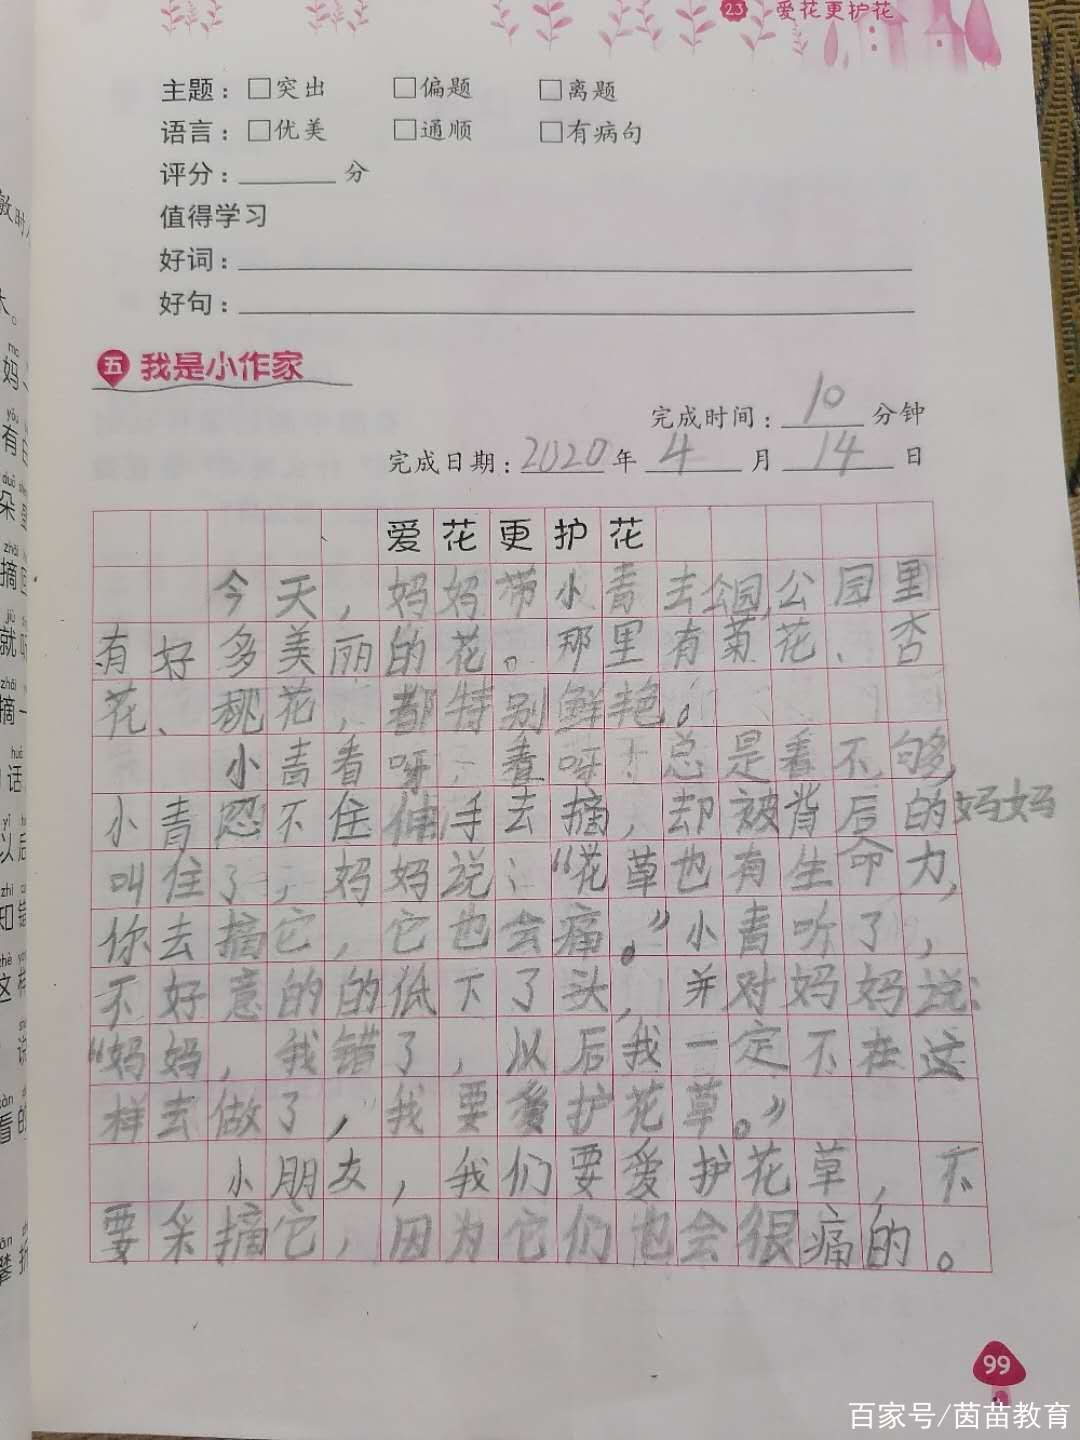 23 爱花更护花
主题：□突出 □偏题 □离题
语言：□优美 □通顺 □有病句
评分：______分
值得学习
好词：
好句：
五 我是小作家
完成时间：10分钟
完成日期：2020年4月14日
爱花更护花
今天，妈妈带小青去公园，公园里
有好多美丽的花。那里有菊花、杏
花、桃花，都特别鲜艳。
小青看呀，看呀！总是看不够，
小青忍不住伸手去摘，却被背后的妈妈
叫住了，妈妈说："花草也有生命力，
你去摘它，它也会痛。"小青听了，
不好意的的低下了头，并对妈妈说：
"妈妈，我错了，以后我一定不在这
样去做了，我要爱护花草。"
小朋友，我们要爱护花草，不
要采摘它，因为它们也会很痛的。
99
百家号/茵苗教育